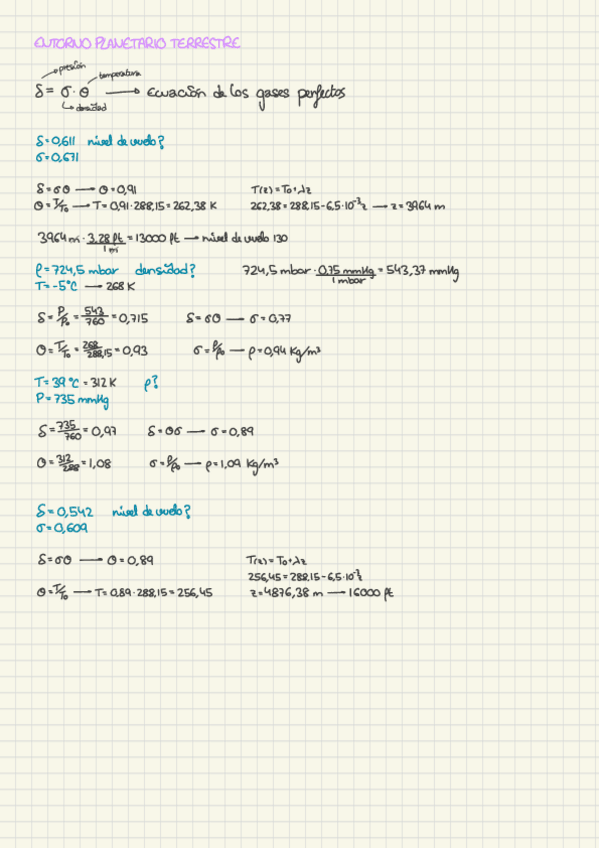 ENTORNO PLANETARIO TERRESTRE
presión
temperatura
δ = σ · θ → Ecuación de los gases perfectos
densidad
δ = 0,611 nivel de vuelo?
σ = 0,671
δ = σθ → θ = 0,91 T(z) = T₀ + λz
θ = T/T₀ → T = 0,91 · 288,15 = 262,38 K 262,38 = 288,15 - 6,5·10⁻³z → z = 3964 m
3964 m · 3,28 ft / 1 m = 13000 ft → nivel de vuelo 130
P = 724,5 mbar densidad? 724,5 mbar · 0,75 mmHg / 1 mbar = 543,37 mmHg
T = -5°C → 268 K
δ = P/P₀ = 543/760 = 0,715 δ = σθ → σ = 0,77
θ = T/T₀ = 268/288,15 = 0,93 σ = ρ/ρ₀ → ρ = 0,94 Kg/m³
T = 39 °C = 312 K ρ?
P = 735 mmHg
δ = 735/760 = 0,97 δ = θσ → σ = 0,89
θ = 312/288 = 1,08 σ = ρ/ρ₀ → ρ = 1,09 Kg/m³
δ = 0,542 nivel de vuelo?
σ = 0,609
δ = σθ → θ = 0,89 T(z) = T₀ + λz
256,45 = 288,15 - 6,5·10⁻³z
θ = T/T₀ → T = 0,89 · 288,15 = 256,45 z = 4876,38 m → 16000 ft